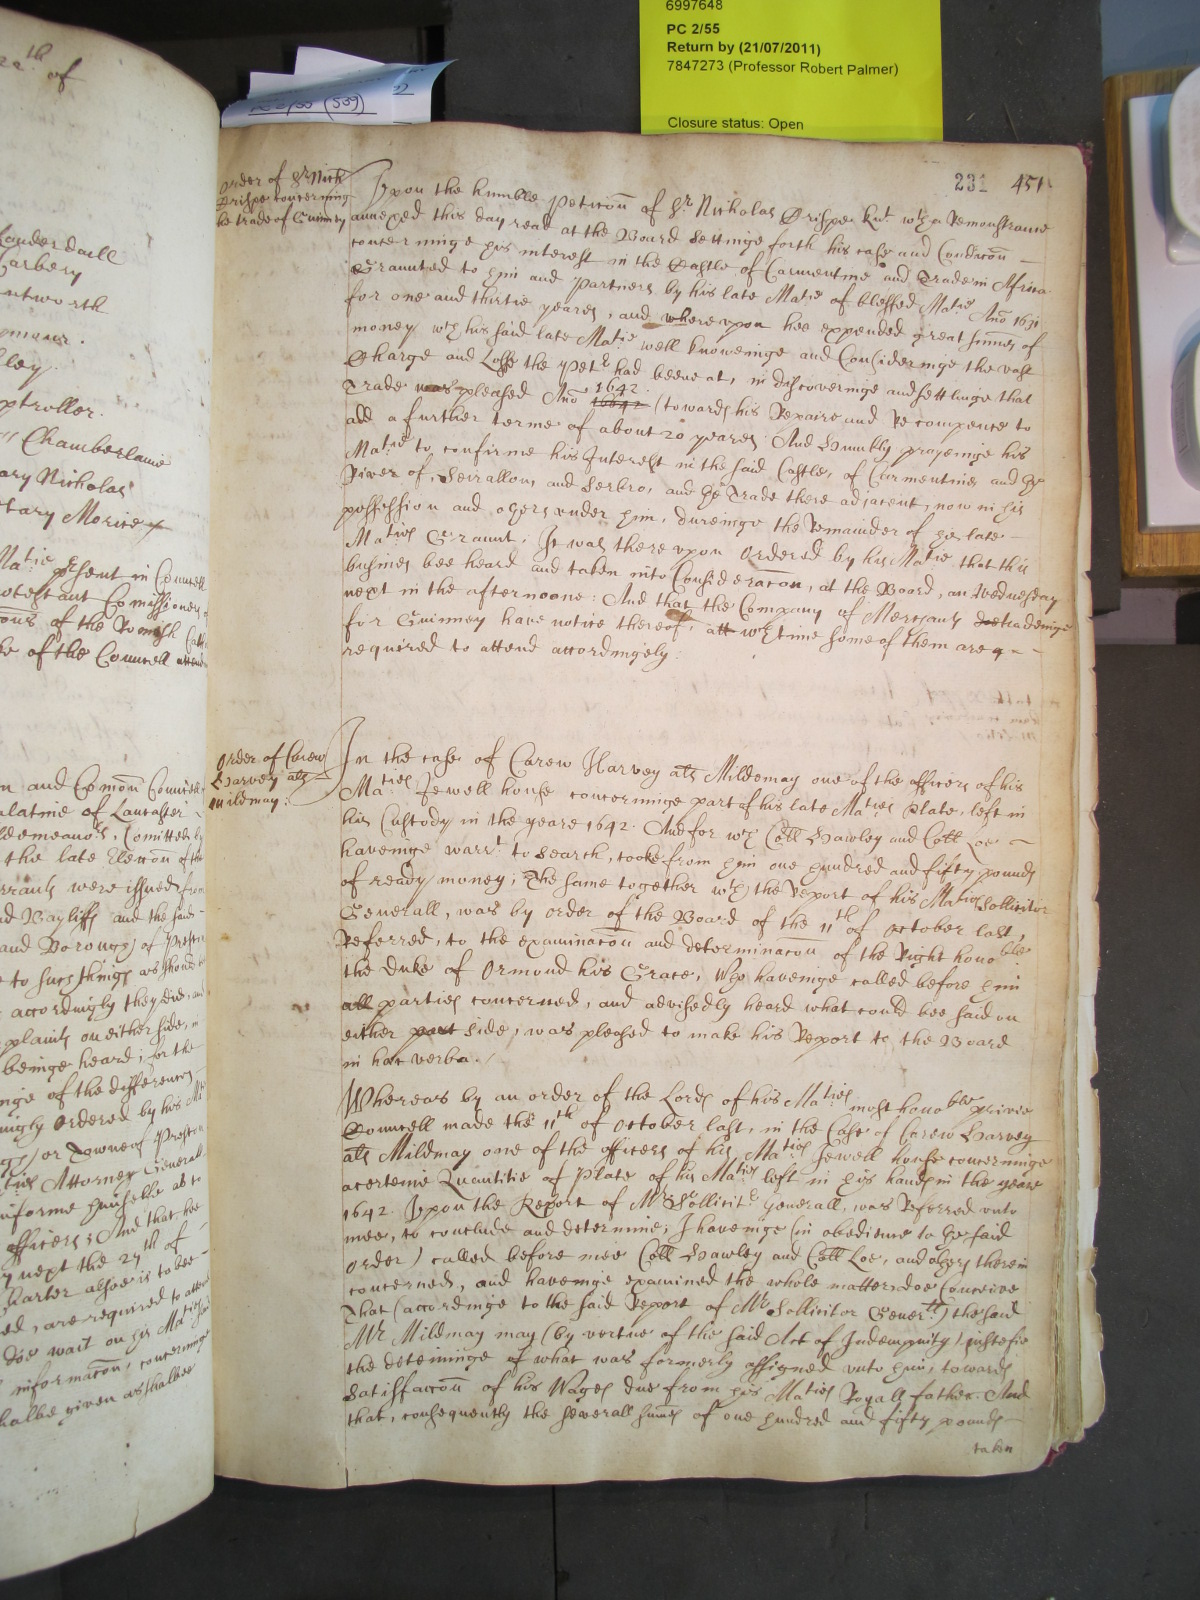 6997648
PC 2/55
Return by (21/07/2011)
7847273 (Professor Robert Palmer)
Closure status: Open
231 451
22th of
Lauderdaill
Carbery
entworth
ley
ptroller.
Chamberlaine
ary Nicholas
tary Morice
Matie psent in Councell
otestant Comissioners
ons of the Romish Cath
ke of the Councell attend
n and Comon Councell
alatine of Lancaster
ldemeanors, Comitted by
the late Eleccon of the
rrants were issued from
nd Bayliffs and the said
and Borough of Preston
to such things as should
accordingly they did, and
plaints on either side, in
beinge heard; for the
nge of the differences
ingly Ordered by his Ma
or Towne of Preston
ties Attorney Generall
informe himselfe as to
officers; And that hee
y next the 27th of
harter alsoe is to bee
ed, are required to attend
doe wait on his Maties said
informacon, concerninge
halbe given as shalbee
Order of Sr Nich
Crispe concerning
he trade of Guinney
Upon the humble Peticon of Sr Nicholas Crispe Knt. wth a Remonstrance
annexed this day read at the Board Settinge forth his case and Condicon
concerninge his interest in the Castle of Carmentine and Trade in Africa
Graunted to him and Partners by his late Matie of blessed Matie Ano 1631
for one and thirtie yeares, and whereupon hee expended great summes of
money wch his said late Matie well knoweinge and Consideringe the vast
Charge and Losse the Petr had beene at, in discoveringe and settlinge that
Trade was pleased Ano 1642 16642 (towards his Repaire and Recompence to
add a further terme of about 20 yeares And Humbly prayeinge his
Matie to confirme his Interest in the said Castle, of Carmentine and the
River of, Seirallon, and Serbro, and the Trade there adjacent, now in his
possession and others under him, dureinge the Remainder of his late
Maties Graunt; It was thereupon Ordered by his Matie that this
busines bee heard and taken into Consideracon, at the Board, on Wednesday
next in the afternoone: And that the Company of Merchants tradeinge
for Guinney have notice thereof, att wch time some of them are
required to attend accordingely:
Order of Carew
Harvey als
Mildmay:
In the case of Carew Harvey als Mildemay one of the officers of his
Maties Jewell house concerninge part of his late Maties Plate, left in
his Custody in the yeare 1642. And for wch Coll Hawley and Coll Loe
haveinge warrt. to Search, tooke from him one hundred and fifty pounds
of ready money; The same together wth the Report of his Maties Sollicitor
Generall, was by order of the Board of the 11th of October last,
Referred, to the examinacon and determinacon of the Right honoble
the Duke of Ormond his Grace, Who haveinge called before him
all parties concerned, and advisedly heard what could bee said on
either part side, was pleased to make his Report to the Board
in hac verba.
Whereas by an order of the Lords of his Maties most honoble privie
Councell made the 11th of October last, in the Case of Carew Harvey
als Mildmay one of the officers of his Maties Jewell house concerninge
a certeine Quantitie of Plate of his Maties left in his hands in the yeare
1642. Upon the Report of Mr Sollicitr Generall, was Referred unto
mee, to conclude and determine; I haveinge (in obedience to the said
order) called before mee Coll Hawley and Coll Loe, and others therein
concerned, and haveinge examined the whole matter, doe Conceive
That (accordinge to the said Report of Mr Sollicitor Generll) the said
Mr Mildmay may (by vertue of the said Act of Indempnity) justefie
the deteininge of what was formerly assigned unto him, towards
Satisfaccon of his Wages due from his Maties Royall father. And
that, consequently the severall sumes of one hundred and fifty pounds
taken